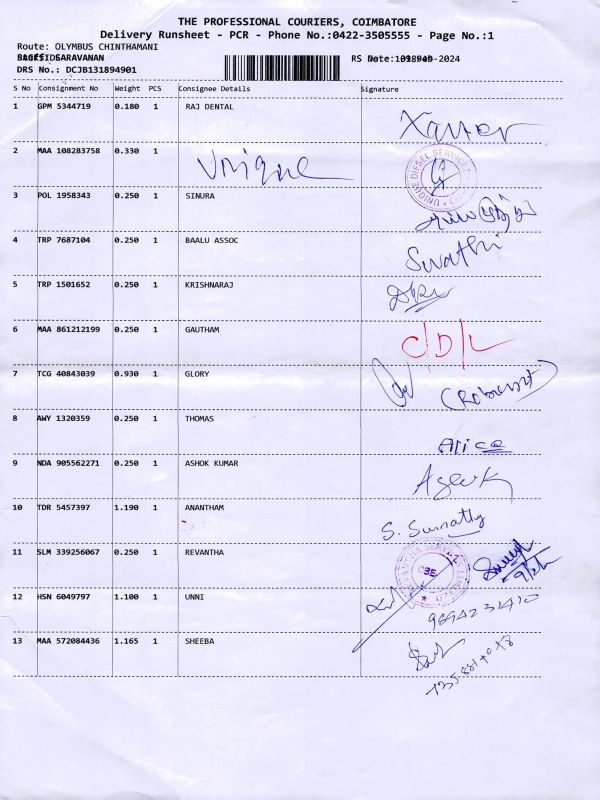 THE PROFESSIONAL COURIERS, COIMBATORE
Delivery Runsheet - PCR - Phone No.:0422-3505555 - Page No.:1
Route: OLYMBUS CHINTHAMANI
SARAVANAN
RS Date: -2024
DRS No.: DCJB131894901
S No Consignment No Weight PCS Consignee Details Signature
1 GPM 5344719 0.180 1 RAJ DENTAL Xavier
2 MAA 108283758 0.330 1 Unique UNIQUE DIESEL SERVICES
3 POL 1958343 0.250 1 SINURA
4 TRP 7687104 0.250 1 BAALU ASSOC Swathi
5 TRP 1501652 0.250 1 KRISHNARAJ
6 MAA 861212199 0.250 1 GAUTHAM C/D/L
7 TCG 40843039 0.930 1 GLORY
8 AWY 1320359 0.250 1 THOMAS Alice
9 NDA 905562271 0.250 1 ASHOK KUMAR
10 TDR 5457397 1.190 1 ANANTHAM S. Sumathy
11 SLM 339256067 0.250 1 REVANTHA CBE
12 HSN 6049797 1.100 1 UNNI 9894231410
13 MAA 572084436 1.165 1 SHEEBA